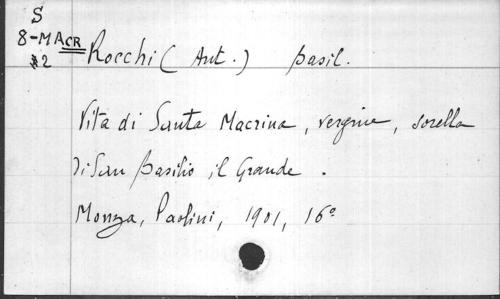 S
8-MACR
#2
Rocchi (Ant.) basil.
Vita di Santa Macrina, vergine, sorella
di San Basilio il Grande.
Monza, Paolini, 1901, 16°